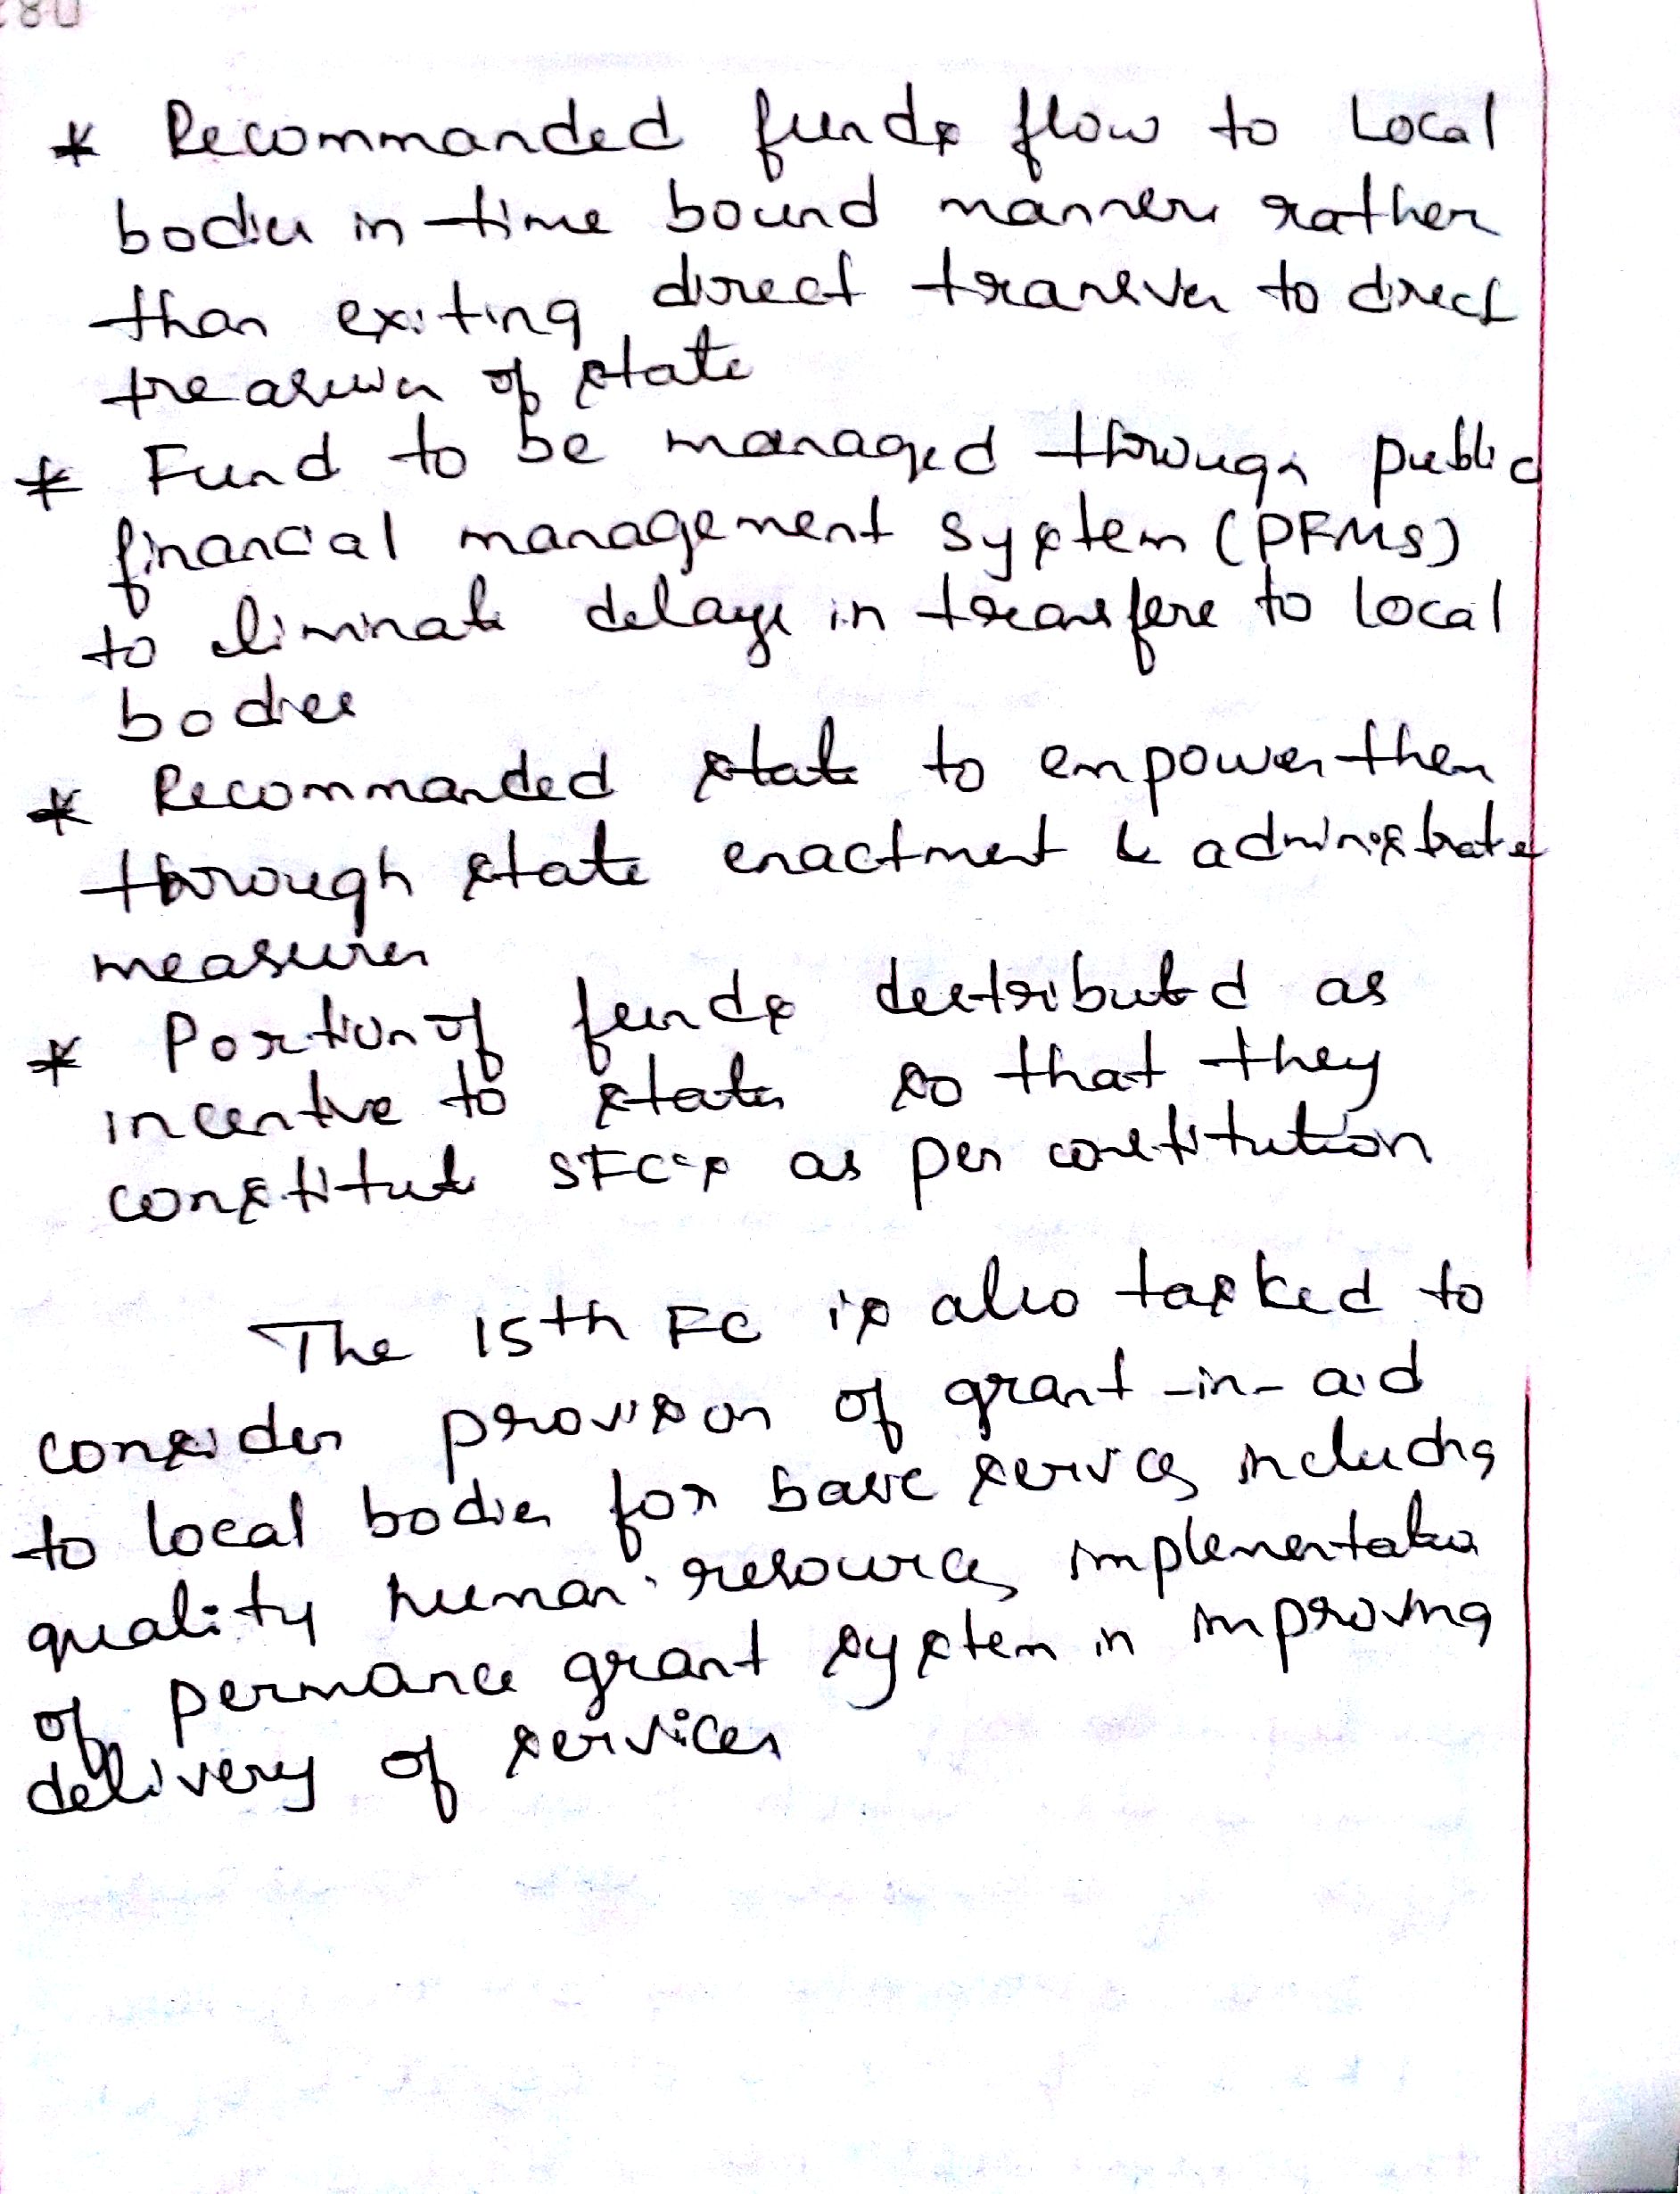 * Recommanded funds flow to Local
bodies in time bound manner rather
than exiting direct transver to direct
treasurer of state
* Fund to be managed through public
financial management system (PFMS)
to eliminate delays in transfere to local
bodies
* Recommanded state to empower them
through state enactment & administrate
measures
* Portion of funds destributed as
incentive to states so that they
constitute SFC's as per constitution
The 15th FC is also tasked to
consider provision of grant-in-aid
to local bodies for basic services including
quality human resources implementation
of permance grant system in improving
delivery of services